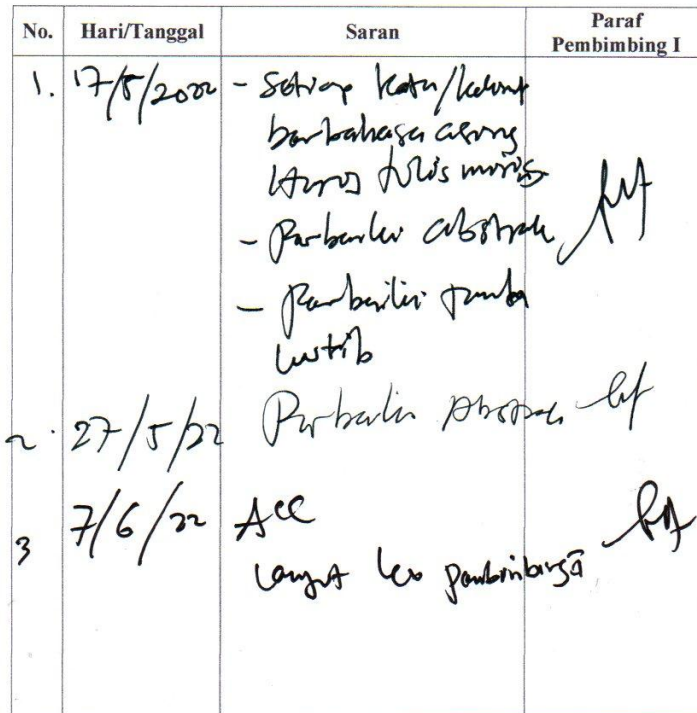 No. Hari/Tanggal Saran Paraf Pembimbing I
1. 17/5/2022 - Setiap kata/kalimat
berbahasa asing
harus tulis miring
- Perbaiki abstrak
- Perbaiki tanda
kutib
2. 27/5/22 Perbaiki Abstrak
3 7/6/22 ACC
Lanjut ke pembimbing